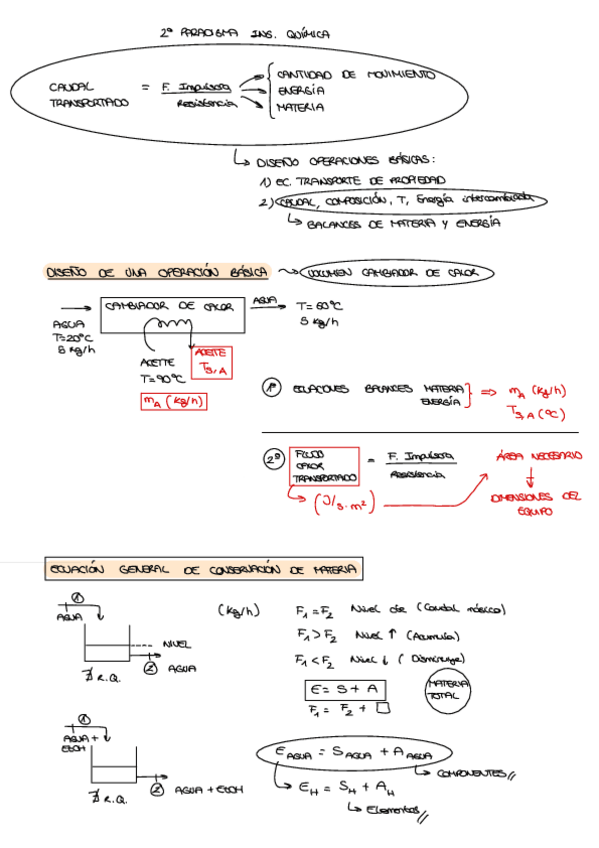 2º PARADIGMA ING. QUÍMICA
CAUDAL TRANSPORTADO = F. Impulsora / Resistencia
CANTIDAD DE MOVIMIENTO
ENERGÍA
MATERIA
DISEÑO OPERACIONES BÁSICAS:
1) EC. TRANSPORTE DE PROPIEDAD
2) CAUDAL, COMPOSICIÓN, T, Energía intercambiada
BALANCES DE MATERIA Y ENERGÍA
DISEÑO DE UNA OPERACIÓN BÁSICA
VOLUMEN CAMBIADOR DE CALOR
CAMBIADOR DE CALOR
AGUA
T=20ºC
5 kg/h
AGUA
T=60ºC
5 kg/h
ACEITE
T=90ºC
mA (kg/h)
ACEITE
TS,A
1º ECUACIONES BALANCES MATERIA
ENERGÍA
=> mA (kg/h)
TS,A (ºC)
2º FLUJO CALOR TRANSPORTADO = F. Impulsora / Resistencia
(J/s·m²)
ÁREA NECESARIO
DIMENSIONES DEL EQUIPO
ECUACIÓN GENERAL DE CONSERVACIÓN DE MATERIA
1
AGUA
NIVEL
2 AGUA
∄ R.Q.
(kg/h)
F1 = F2 Nivel cte (Caudal másico)
F1 > F2 Nivel ↑ (Acumula)
F1 < F2 Nivel ↓ (Disminuye)
E = S + A
F1 = F2 + □
MATERIA TOTAL
1
AGUA +
EtOH
2 AGUA + EtOH
∄ R.Q.
E AGUA = S AGUA + A AGUA
COMPONENTES //
EH = SH + AH
Elementos //